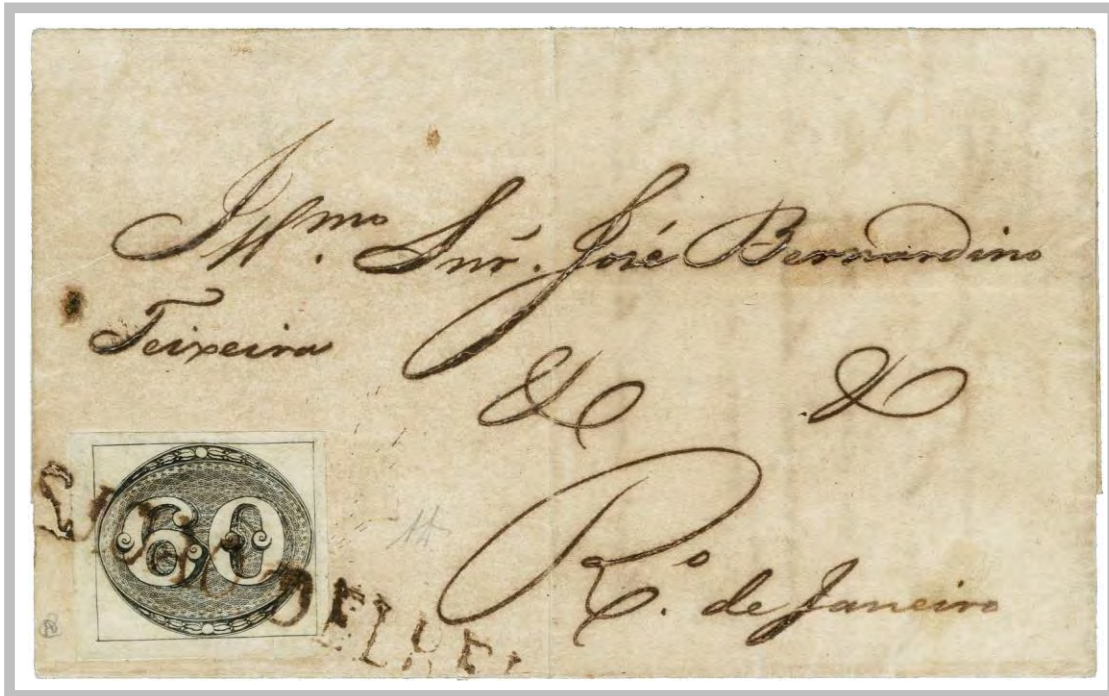 Illmo. Snr. José Bernardino
Teixeira
& &
Ro. de Janeiro
60
DELREI
14